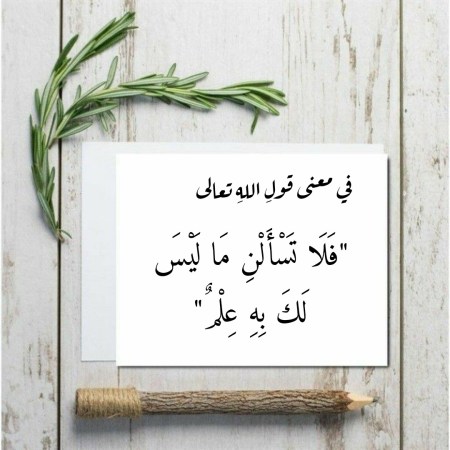 في معنى قولِ اللهِ تعالى
"فَلَا تَسْأَلْنِ مَا لَيْسَ
لَكَ بِهِ عِلْمٌ"